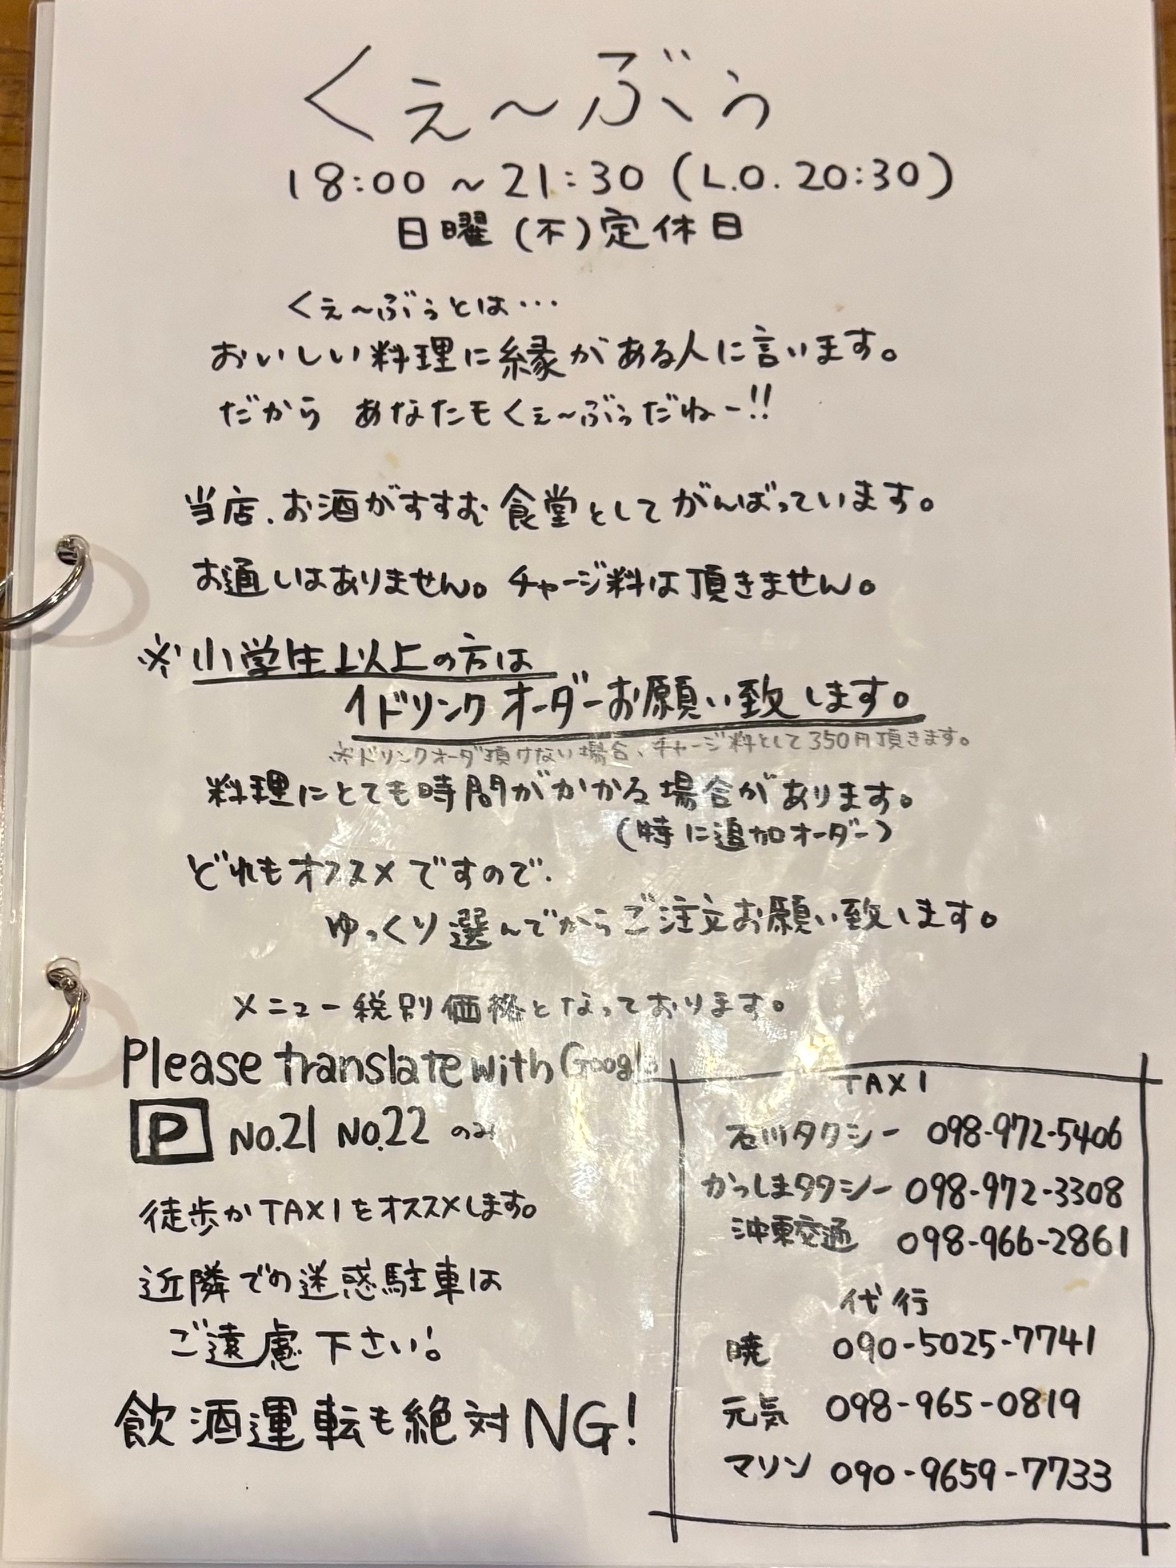 くぇ〜ぶぅ
18:00〜21:30(L.O.20:30)
日曜(不)定休日
くぇ〜ぶぅとは…
おいしい料理に縁がある人に言います。
だから あなたもくぇ〜ぶぅだねー!!
当店、お酒がすすむ食堂としてがんばっています。
お通しはありません。チャージ料は頂きません。
※小学生以上の方は
1ドリンクオーダーお願い致します。
※ドリンクオーダ頂けない場合、チャージ料として350円頂きます。
料理にとても時間がかかる場合があります。
(特に追加オーダー)
どれもオススメですので、
ゆっくり選んでからご注文お願い致します。
メニュー税別価格となっております。
Please translate with Google
P No.21 No.22 のみ
徒歩かTAXIをオススメします。
近隣での迷惑駐車は
ご遠慮下さい!
飲酒運転も絶対NG!
TAXI
石川タクシー 098-972-5406
かつしまタクシー 098-972-3308
沖東交通 098-966-2861
代行
暁 090-5025-7741
元気 098-965-0819
マリン 090-9659-7733